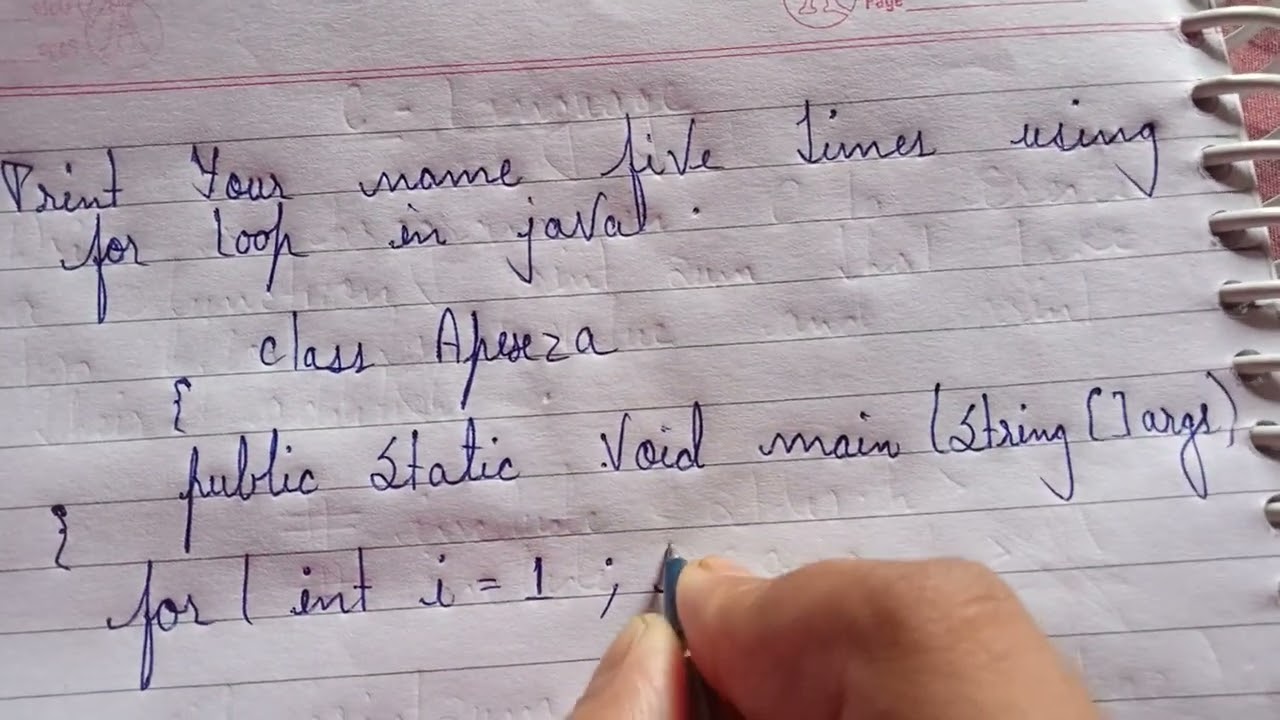 Page
Print Your name five times using
for loop in java.
class Apeseza
{
public static void main (String [] args)
{
for ( int i = 1 ;